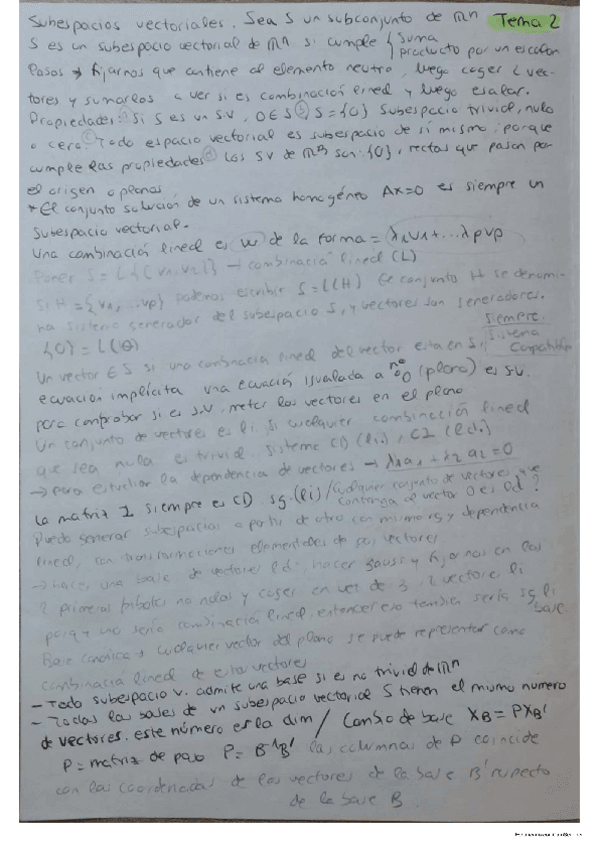 Subespacios vectoriales. Sea S un subconjunto de ℝn Tema 2
S es un subespacio vectorial de ℝn si cumple { suma
producto por un escalar
Pasos → fijarnos que contiene al elemento neutro, luego coger 2 vec-
tores y sumarlos a ver si es combinación lineal y luego escalar.
Propiedades: ① Si S es un s.v, 0∈S ② S={0} subespacio trivial, nulo
o cero. Todo espacio vectorial es subespacio de sí mismo porque
cumple las propiedades Los SV de ℝ3 son {0}, rectas que pasan por
el origen o planos
*El conjunto solución de un sistema homogéneo Ax=0 es siempre un
subespacio vectorial.
Una combinación lineal es w de la forma = λ1v1+...λpvp
Poner S=L{(v1,v2)} → combinación lineal (L)
Si H={v1,...vp} podemos escribir S=L(H) El conjunto H se denomi-
na sistema generador del subespacio S, y vectores son generadores.
{0}=L(∅) siempre. Sistema
Un vector ∈ S si una combinación lineal del vector esta en S. Compatible
ecuación implícita una ecuación igualada a 0 (plano) es s.v.
para comprobar si es s.v, meter los vectores en el plano
Un conjunto de vectores es li si cualquier combinación lineal
que sea nula es trivial sistema CD (li), CI (ld.)
→ para estudiar la dependencia de vectores → λ1a1+λ2a2=0
La matriz I siempre es CD sg.(li)/Cualquier conjunto de vectores que
contenga al vector 0 es ld?
Puedo generar subespacios a partir de otro con mismo rg y dependencia
lineal, con transformaciones elementales de sus vectores
→ hacer una base de vectores ld: hacer gauss y fijarnos en las
2 primeras no nulas y coger en vez de 3, 2 vectores li
porq uno sería combinación lineal, entonces eso también sería sg li
base
Base canónica → cualquier vector del plano se puede representar como
combinación lineal de estos vectores
- Todo subespacio v. admite una base si es no trivial de ℝn
- Todas las bases de un subespacio vectorial S tienen el mismo número
de vectores. este número es la dim / Cambio de base XB=PXB'
P=matriz de paso P=B⁻¹B' las columnas de P coincide
con las coordenadas de los vectores de la base B' respecto
de la base B.